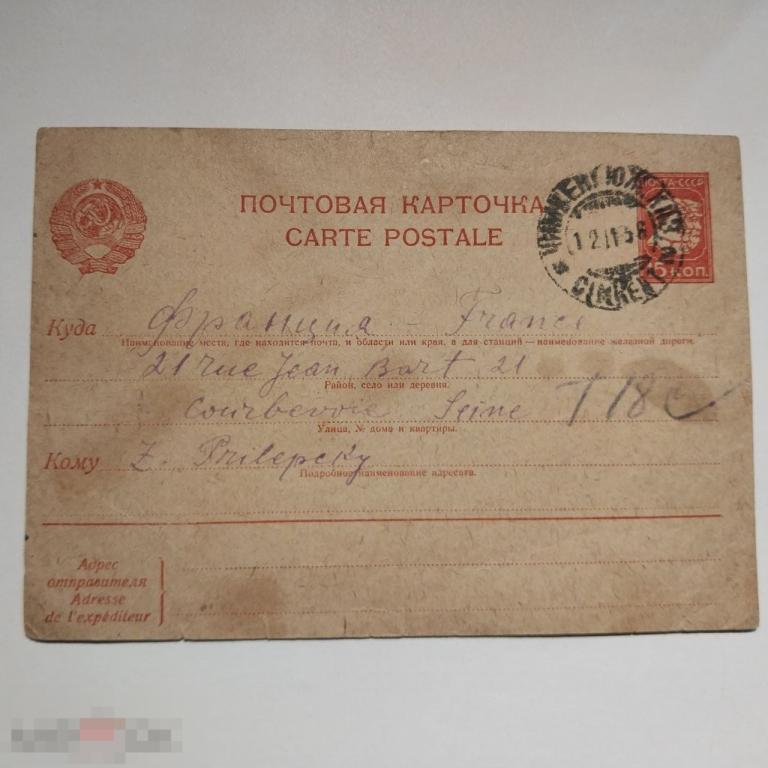 ПОЧТОВАЯ КАРТОЧКА
CARTE POSTALE
ПОЧТА-СССР
5 КОП.
ЧИМКЕНТ ЮЖ. КАЗ.
CIMKENT
Куда Франция - France
Наименование места, где находится почта, и области или края, а для станций — наименование железной дороги.
21 rue Jean Bart 21
Район, село или деревня.
Courbevoie Seine T 18 c
Улица, № дома и квартиры.
Кому Z. Prilepcky
Подробное наименование адресата.
Адрес
отправителя
Adresse
de l'expéditeur